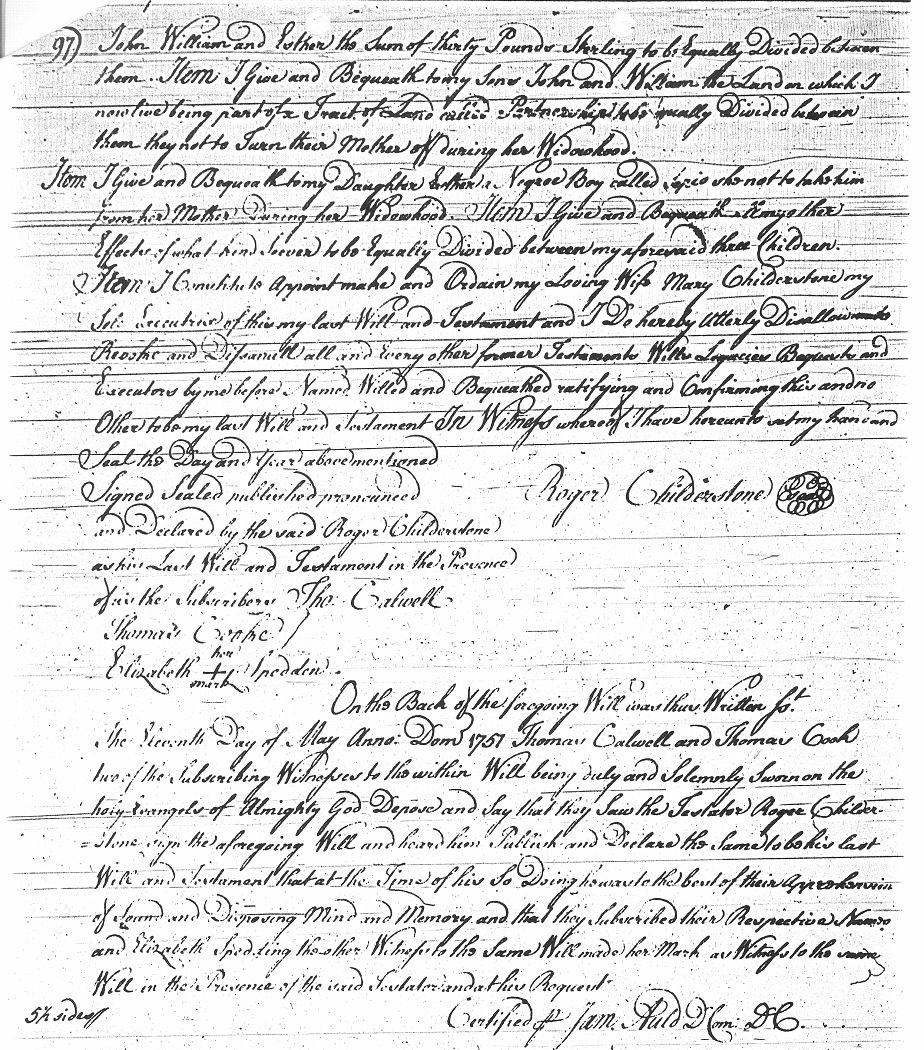 97) John William and Esther the Sum of thirty Pounds Sterling to be Equally Divided between
them. Item I Give and Bequeath to my Sons John and William the Land on which I
now live being part of a Tract of Land called Partnership to be equally Divided between
them they not to Turn their Mother off during her Widowhood.
Item I Give and Bequeath to my Daughter Esther a Negroe Boy called she not to take him
from her Mother During her Widowhood. Item I Give and Bequeath all my other
Effects of what kind Soever to be Equally Divided between my aforesaid three Children.
Item I Constitute Appoint make and Ordain my Loving Wife Mary Childerstone my
Sole Executrix of this my last Will and Testament and I Do hereby Utterly Disallow
Revoke and Disannull all and Every other former Testaments Wills Legacies Bequests and
Executors by me before Named Willed and Bequeathed ratifying and Confirming this and no
Other to be my last Will and Testament In Witness whereof I have hereunto set my hand and
Seal the Day and Year above mentioned
Signed Sealed published pronounced Roger Childerstone (seal)
and Declared by the said Roger Childerstone
as his Last Will and Testament in the Presence
of us the Subscribers Tho. Calwell
Thomas Cooke
Elizabeth her + mark Spedden.
On the Back of the foregoing Will was thus Written Sst
The Eleventh Day of May Anno: Dom 1751 Thomas Calwell and Thomas Cook
two of the Subscribing Witnesses to the within Will being duly and Solemnly Sworn on the
holy Evangels of Almighty God Depose and Say that they Saw the Testator Roger Childer-
=stone sign the aforegoing Will and heard him Publish and Declare the Same to be his last
Will and Testament that at the Time of his So Doing he was to the best of their Apprehension
of Sound and Disposing Mind and Memory and that they Subscribed their Respective Names
and Elizabeth Spedding the other Witness to the Same Will made her Mark as Witness to the same
Will in the Presence of the said Testator and at his Request
5½ sides Certified pr Jam. Auld D Com: D C.